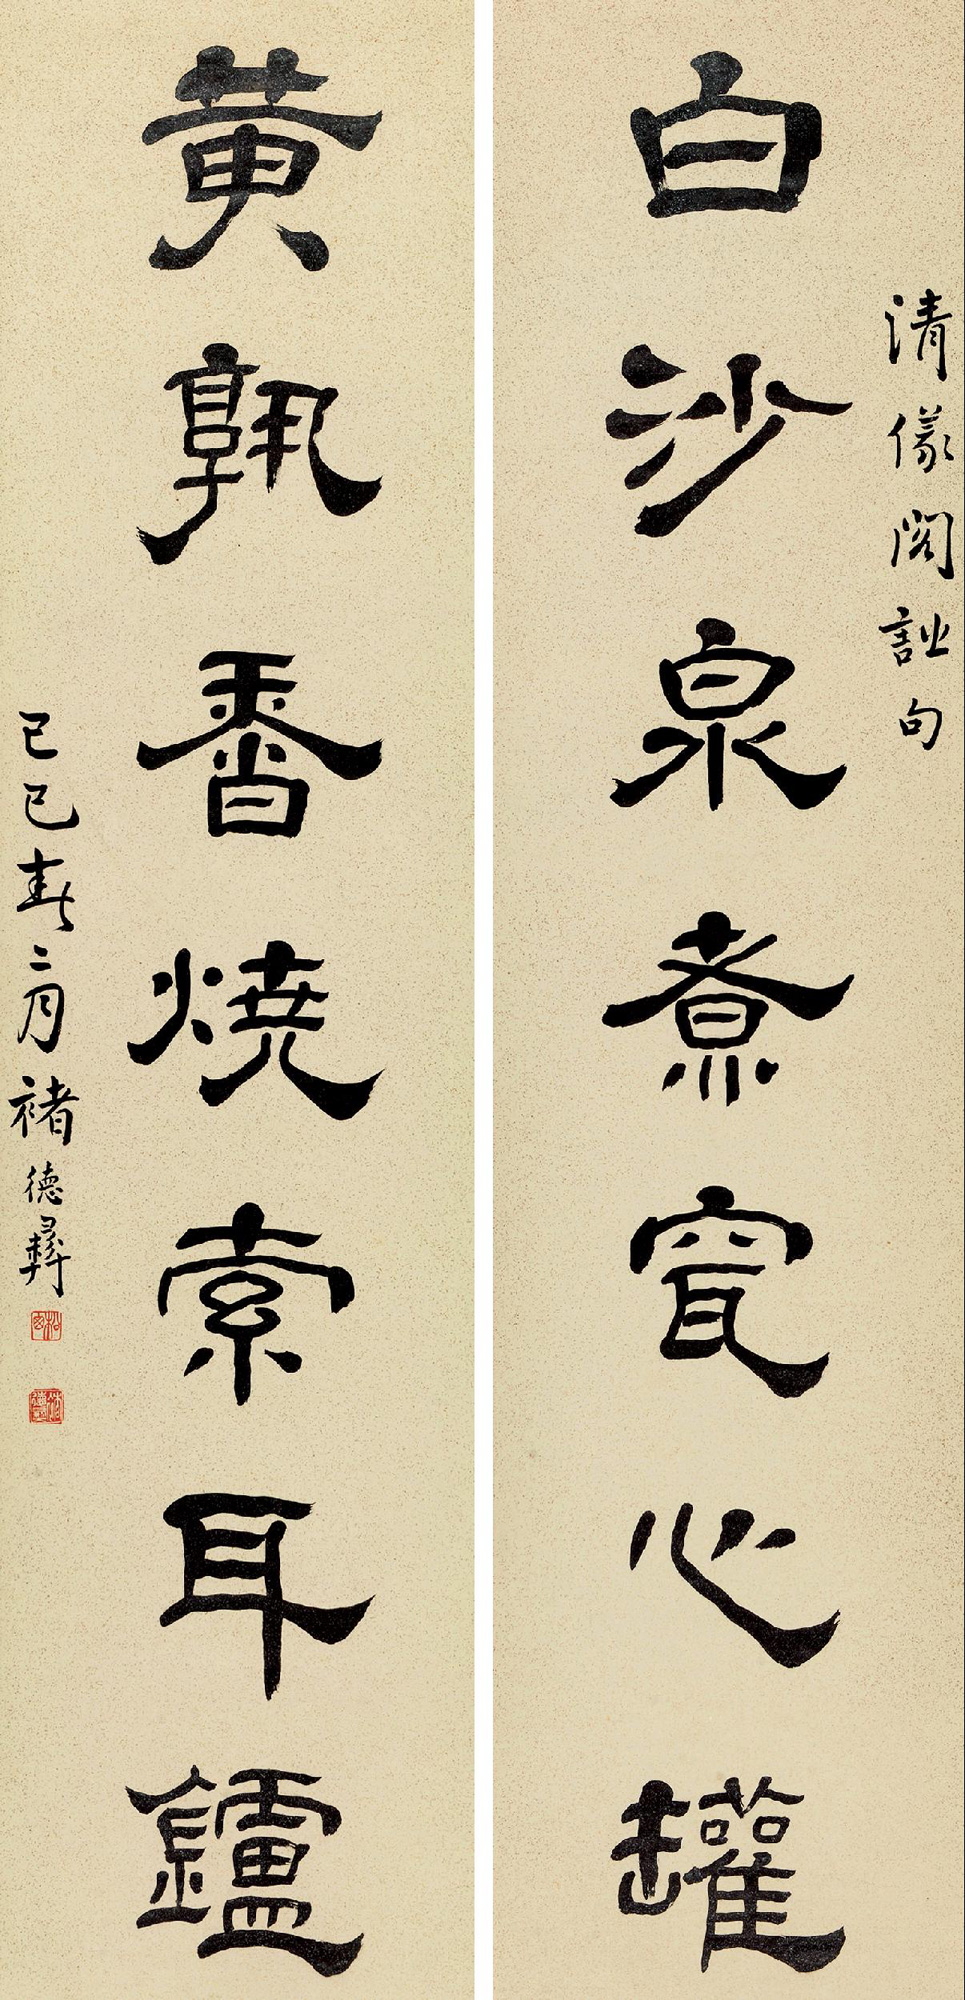 清儀閣句
白沙泉煮心罐
黄孰香燒索耳鑪
己巳春二月褚德彝